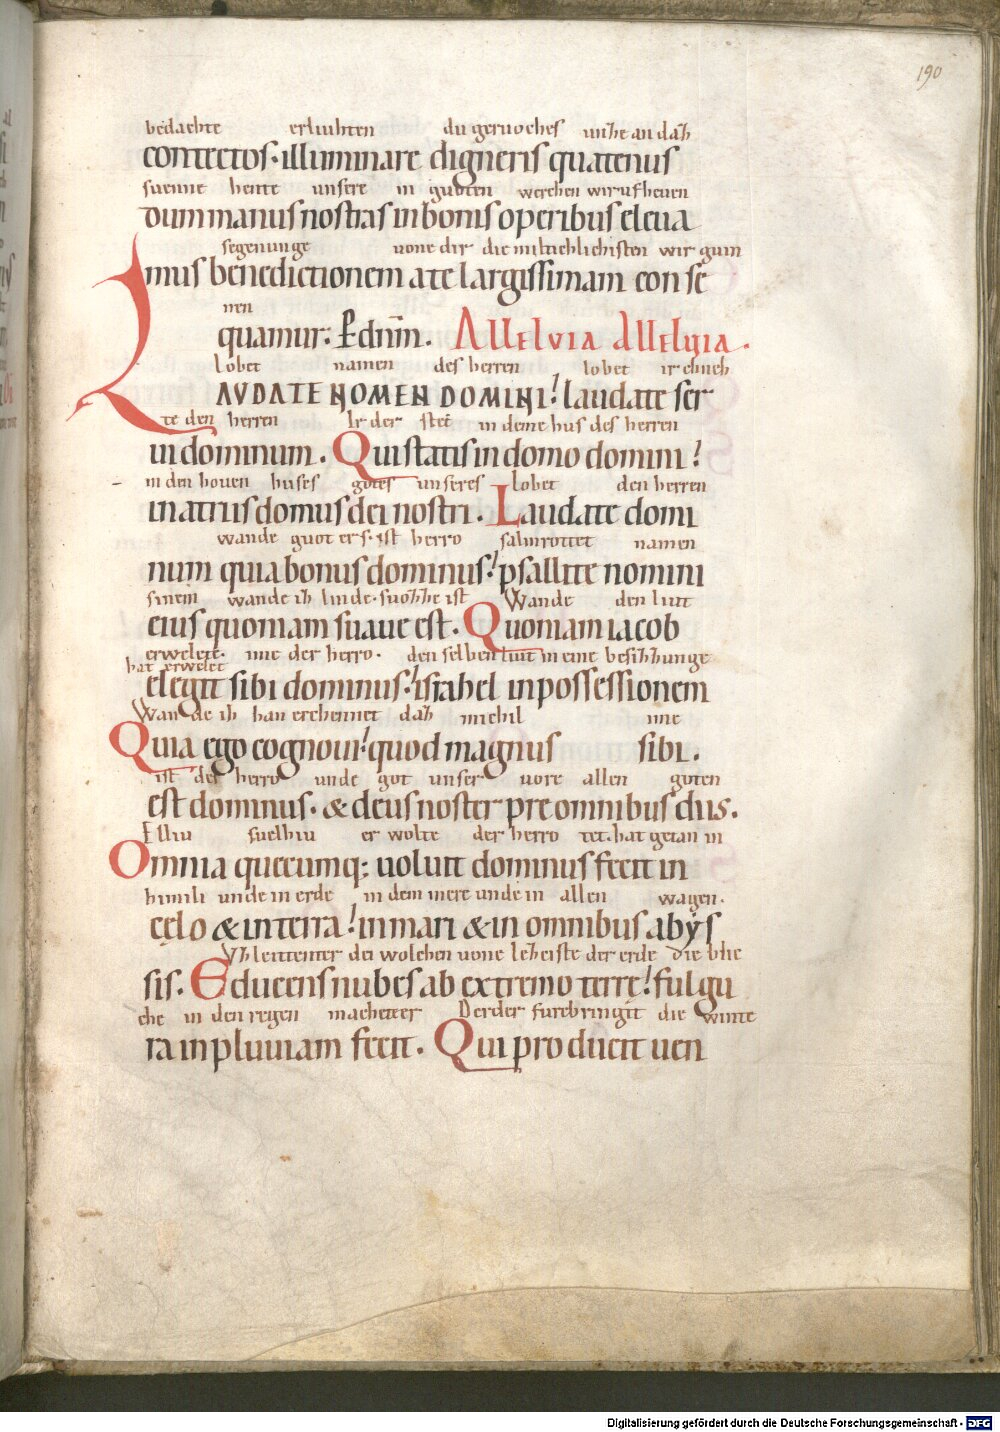 190
bedachte erliuhten du geruoches unihe an daz
contectos· illuminare digneris quatenus
suenne hente unsere in guoten werchen wir uf heuen
dum manus nostras in bonis operibus eleua
segenunge uone dir die miltichlichisten wir guin
mus benedictionem a te largissimam con se
nen
quamur: P̄ dn̄m. Alleluia Alleluia.
Lobet namen des herren lobet ir chneh
LAVDATE NOMEN DOMINI! laudate ser
te den herren Ir der stet in deme hus des herren
ui dominum. Qui statis in domo domini!
in den houen huses gotes unseres Lobet den herren
in atriis domus dei nostri. Laudate domi
wande guot er s· ist herro salmrottet namen
num quia bonus dominus! psallite nomini
sinem wande iz linde· suozze ist Wande den liut
eius quoniam suaue est. Quoniam iacob
erwelete· ime der herro· den selben liut in eine besizzunge
hat erwelet
elegit sibi dominus! israhel in possessionem
Wande ih han erchennet daz michil ime
Quia ego cognoui! quod magnus sibi.
ist der herro unde got unser uore allen goten
est dominus. & deus noster pre omnibus diis.
Elliu suelhiu er wolte der herro tet. hat getan in
Omnia quecumq; uoluit dominus fecit in
himili unde in erde in dem mere unde in allen wagen.
celo & in terra! in mari & in omnibus abys
Vzleittenter dei wolchen uone lezeiste der erde die blic
sis. Educens nubes ab extremo terre! fulgu
che in den regen macheter Der der furebringit die winte
ra in pluuiam fecit. Qui producit uen
Digitalisierung gefördert durch die Deutsche Forschungsgemeinschaft - DFG